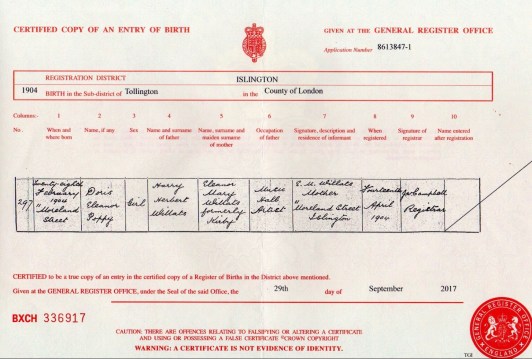 CERTIFIED COPY OF AN ENTRY OF BIRTH
GIVEN AT THE GENERAL REGISTER OFFICE
Application Number 8613847-1
REGISTRATION DISTRICT ISLINGTON
1904 BIRTH in the Sub-district of Tollington in the County of London
Columns:- 1 2 3 4 5 6 7 8 9 10
No. When and where born Name, if any Sex Name and surname of father Name, surname and maiden surname of mother Occupation of father Signature, description and residence of informant When registered Signature of registrar Name entered after registration
297 Twenty eighth February 1904 Moreland Street Doris Eleanor Poppy Girl Harry Herbert Willats Eleanor Mary Willats formerly Kirby Music Hall Artist E. M. Willats Mother Moreland Street Islington Fourteenth April 1904 Campbell Registrar
CERTIFIED to be a true copy of an entry in the certified copy of a Register of Births in the District above mentioned.
Given at the GENERAL REGISTER OFFICE, under the Seal of the said Office, the 29th day of September 2017
BXCH 336917
CAUTION: THERE ARE OFFENCES RELATING TO FALSIFYING OR ALTERING A CERTIFICATE
AND USING OR POSSESSING A FALSE CERTIFICATE ©CROWN COPYRIGHT
WARNING: A CERTIFICATE IS NOT EVIDENCE OF IDENTITY.
GENERAL REGISTER OFFICE
ENGLAND